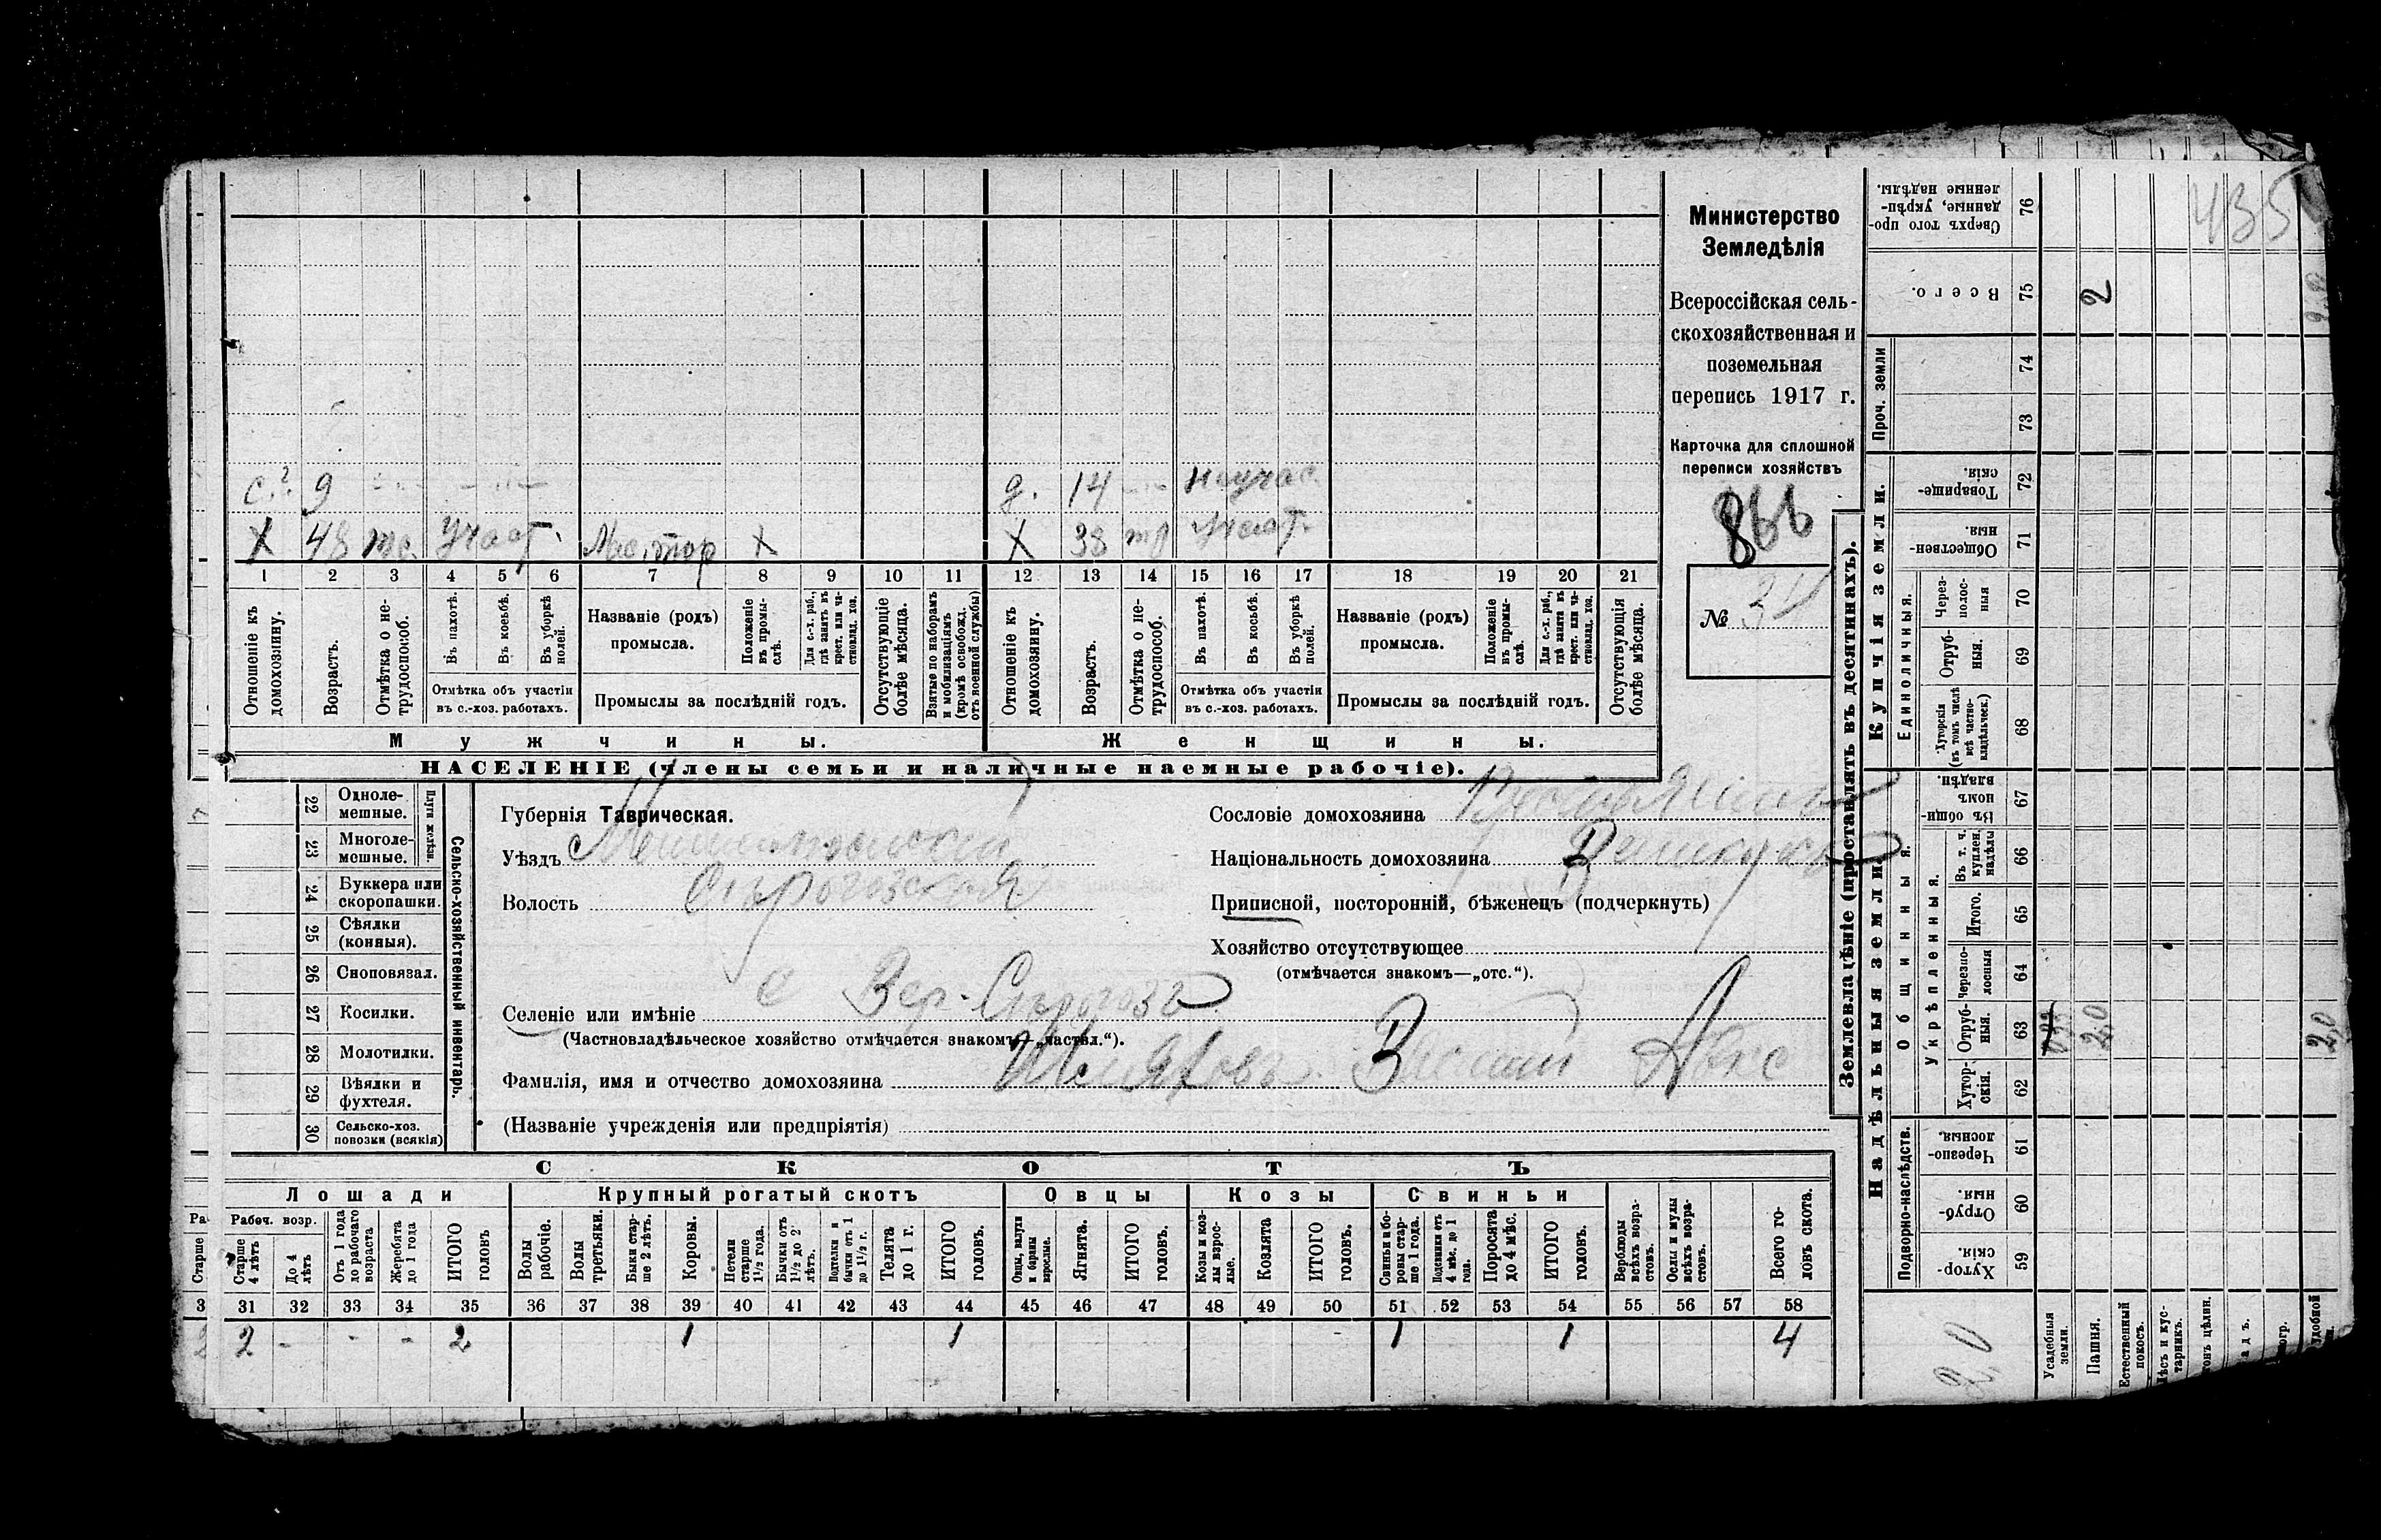 Министерство
Земледѣлія
Всероссійская сель-
скохозяйственная и
поземельная
перепись 1917 г.
Карточка для сплошной
переписи хозяйствъ
866
№ 34
с. 9
д. 14
X 48 Участ. X
X 38 Участ.
1 2 3 4 5 6 7 8 9 10 11 12 13 14 15 16 17 18 19 20 21
Отношеніе къ домохозяину.
Возрастъ.
Отмѣтка о не-
трудоспособ.
Въ пахотѣ.
Въ косьбѣ.
Въ уборкѣ полей.
Отмѣтка объ участіи
въ с.-хоз. работахъ.
Названіе (родъ)
промысла.
Положеніе въ промы-
слѣ.
Для с.-х. раб.,
гдѣ занятъ въ
крест. или ча-
стновлад. хоз.
Промыслы за послѣдній годъ.
Отсутствующіе
болѣе мѣсяца.
Взятые по наборамъ
и мобилизаціямъ
(кромѣ освобожд.
отъ военной службы)
Отношеніе къ
домохозяину.
Возрастъ.
Отмѣтка о не-
трудоспособ.
Въ пахотѣ.
Въ косьбѣ.
Въ уборкѣ
полей.
Отмѣтка объ участіи
въ с.-хоз. работахъ.
Названіе (родъ)
промысла.
Положеніе
въ промы-
слѣ.
Для с.-х. раб.,
гдѣ занята въ
крест. или ча-
стновлад. хоз.
Промыслы за послѣдній годъ.
Отсутствующія
болѣе мѣсяца.
Мужчины.
Женщины.
НАСЕЛЕНІЕ (члены семьи и наличные наемные рабочіе).
22 Одноле-
мешные.
23 Многоле-
мешные.
Плуги желѣзн.
24 Буккера или
скоропашки.
25 Сѣялки
(конныя).
26 Сноповязал.
27 Косилки.
28 Молотилки.
29 Вѣялки и
фухтеля.
30 Сельско-хоз.
повозки (всякія)
Сельско-хозяйственный инвентарь.
Губернія Таврическая.
Уѣздъ Мелитопольскій
Волость Сѣрогозская
Селеніе или имѣніе с Вер-Сѣрогозы
(Частновладѣльческое хозяйство отмѣчается знакомъ—„частвл.“).
Фамилія, имя и отчество домохозяина
(Названіе учрежденія или предпріятія)
Сословіе домохозяина
Національность домохозяина
Приписной, посторонній, бѣженецъ (подчеркнуть)
Хозяйство отсутствующее
(отмѣчается знакомъ—„отс.“).
СКОТЪ
Лошади
Крупный рогатый скотъ
Овцы
Козы
Свиньи
Рабоч. возр.
Старше
4 лѣтъ
До 4
лѣтъ
Отъ 1 года
до рабочаго
возраста
Жеребята
до 1 года
ИТОГО
головъ
Волы
рабочіе.
Волы
третьяки.
Быки стар-
ше 2 лѣтъ.
Коровы.
Нетели
старше
1½ года.
Бычки отъ
1½ до 2
лѣтъ.
Подтелки и
бычки отъ 1
до 1½ г.
Телята
до 1 г.
ИТОГО
головъ.
Овцы, валухи
и бараны
взрослые.
Ягнята.
ИТОГО
головъ.
Козы и коз-
лы взрос-
лые.
Козлята
ИТОГО
головъ.
Свиньи и бо-
ровы стар-
ше 1 года.
Подсвинки отъ
4 мѣс. до 1
года.
Поросята
до 4 мѣс.
ИТОГО
головъ.
Верблюды
всѣхъ возра-
стовъ.
Ослы и мулы
всѣхъ возра-
стовъ.
Всего го-
ловъ скота.
31 32 33 34 35 36 37 38 39 40 41 42 43 44 45 46 47 48 49 50 51 52 53 54 55 56 57 58
2 - - - 2 1 1 1 1 4
Землевладѣніе (проставлять въ десятинахъ).
Надѣльныя земли.
Купчія земли.
Проч. земли
Подворно-наслѣдств.
Общинныя.
Укрѣпленныя.
Единоличныя.
Хутор-
скія.
Отруб-
ныя.
Черезпо-
лосныя.
Хутор-
скія.
Отруб-
ныя.
Черезпо-
лосныя
Итого.
Въ т. ч.
куплен.
надѣлы
Въ общин-
номъ
владѣн.
Хуторскія
(въ томъ числѣ
всѣ частно-
владѣльческ.)
Отруб-
ныя.
Через-
полос-
ныя
Обществен-
ныя.
Товарище-
скія.
Всего.
Сверхъ того про-
данные, укрѣп-
ленные надѣлы.
59 60 61 62 63 64 65 66 67 68 69 70 71 72 73 74 75 76
Усадебныя
земли.
Пашня.
Естественный
покосъ.
2
435